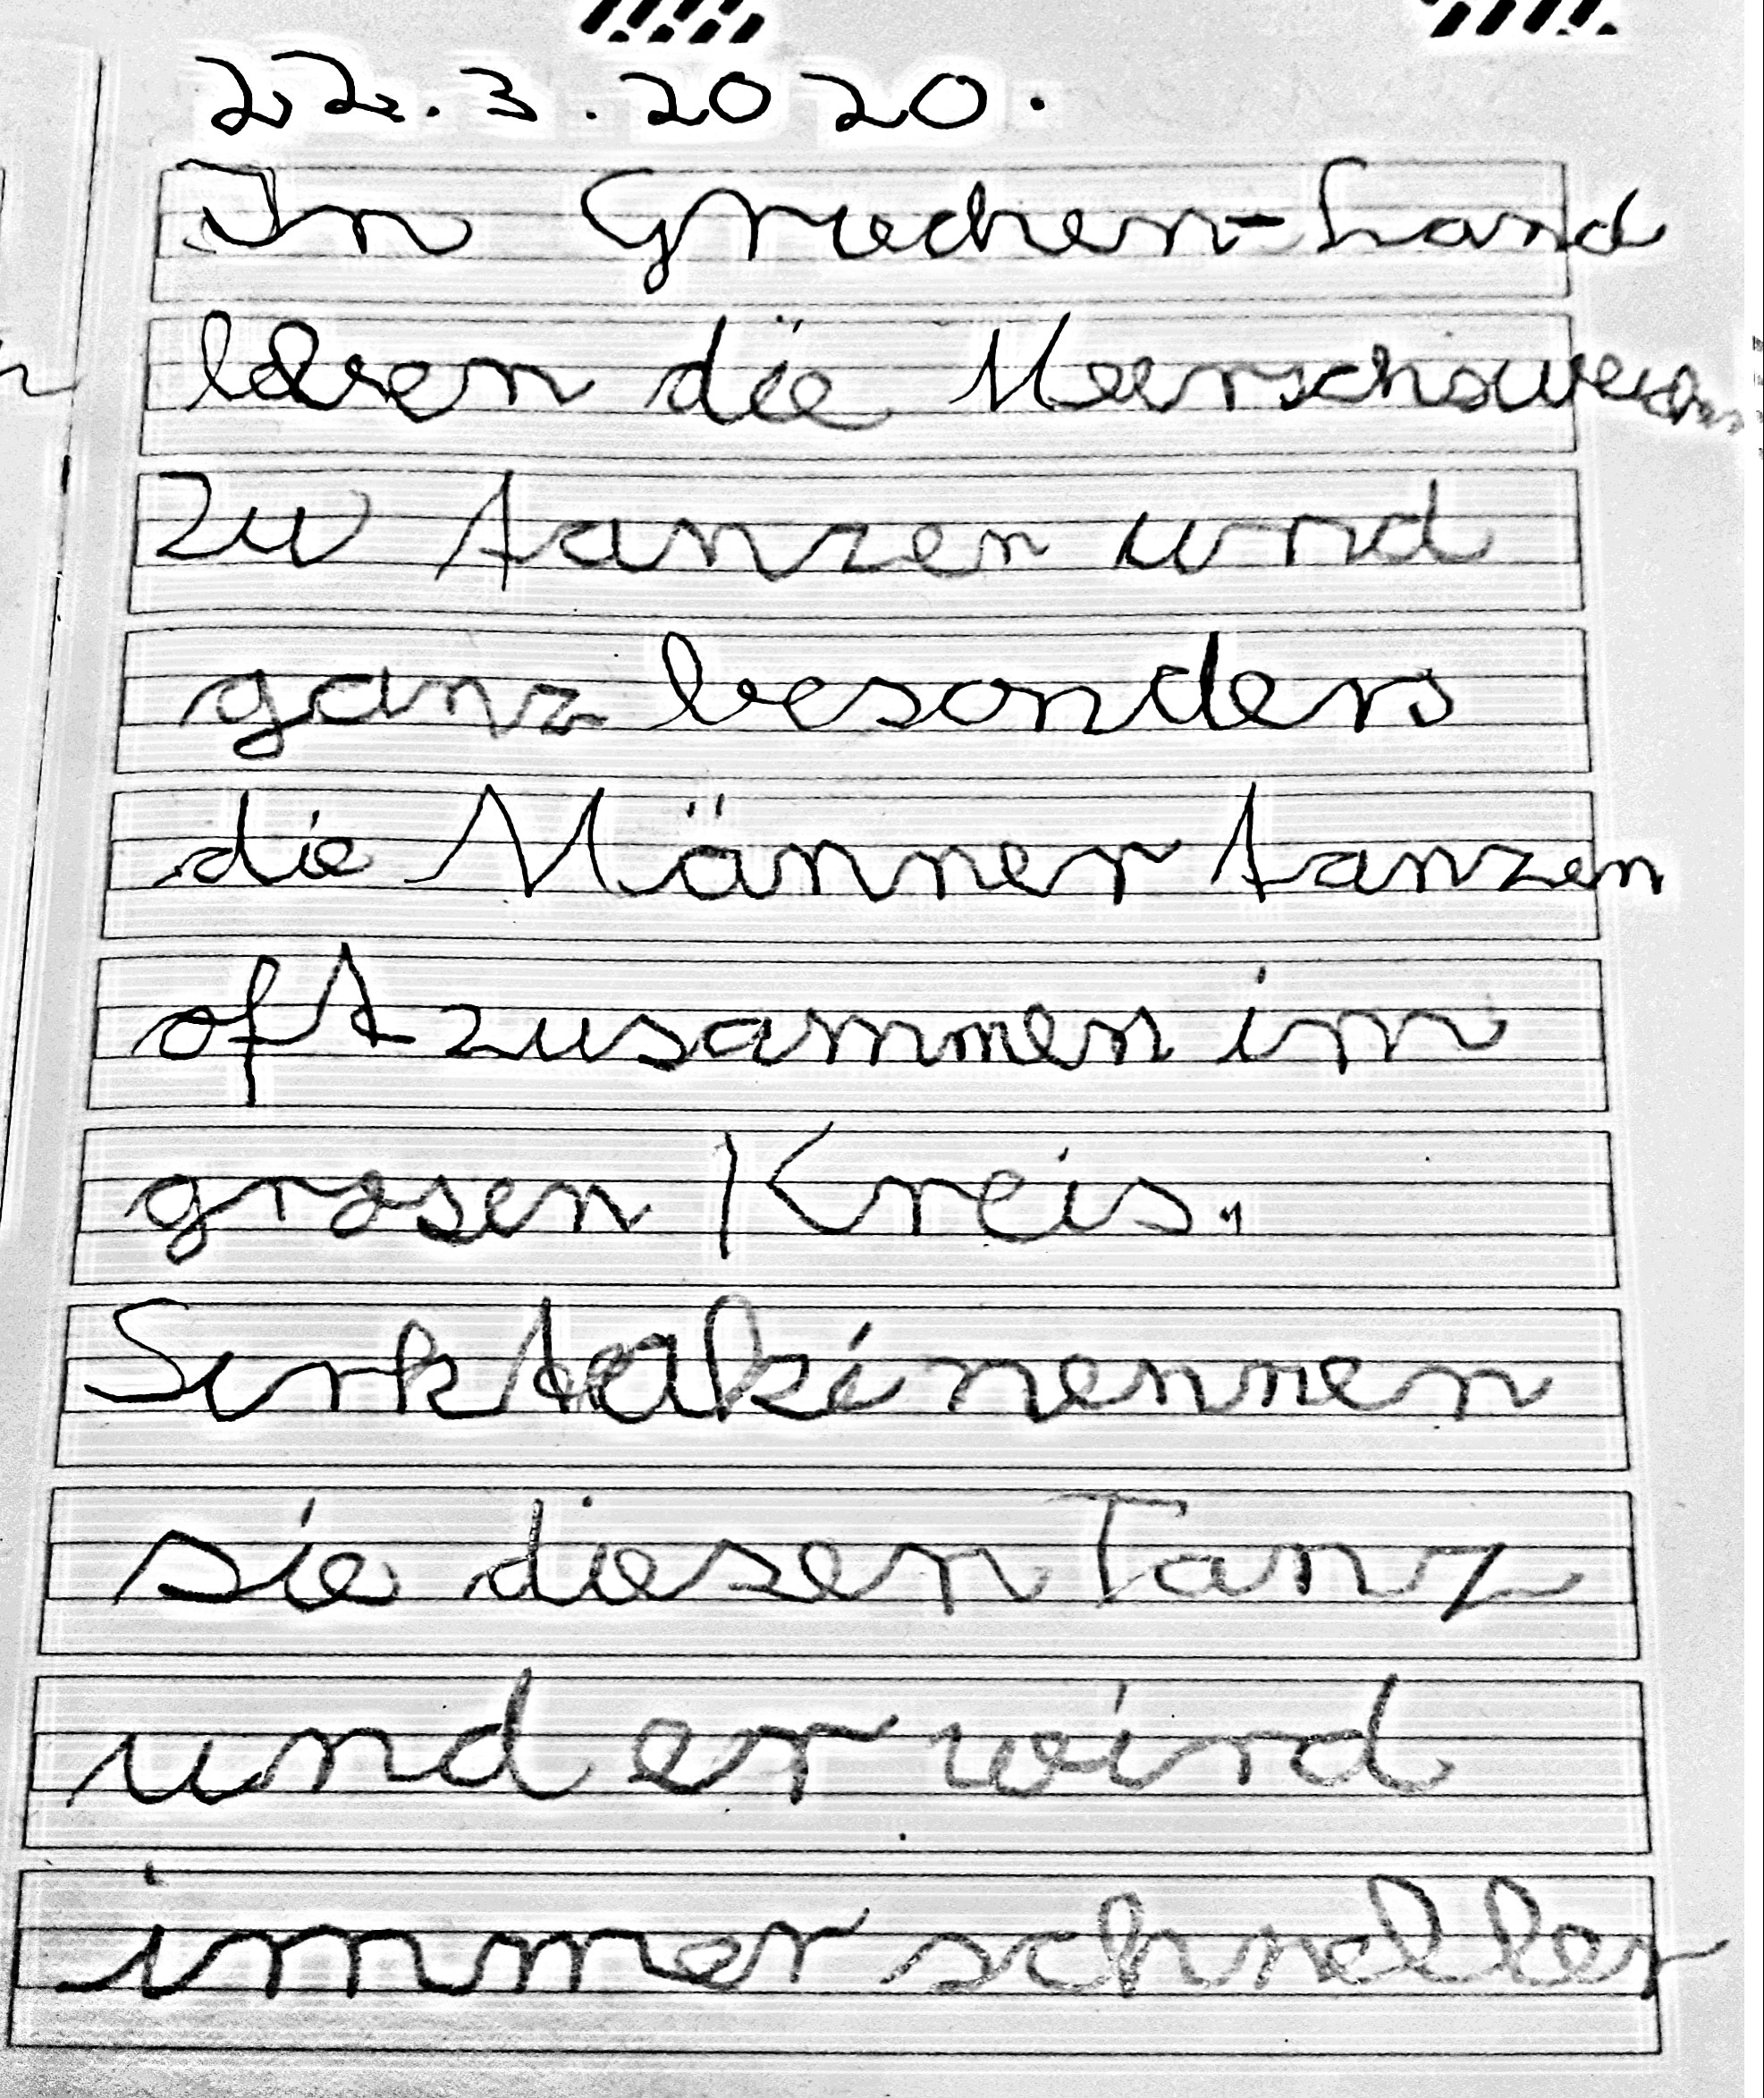 22.3.2020.
In Griechen-Land
lieben die Meerschwein
zu tanzen und
ganz besonders
die Männer tanzen
oft zusammen im
grosen Kreis.
Sirktaki nennen
sie diesen Tanz
und er wird
immer schneller